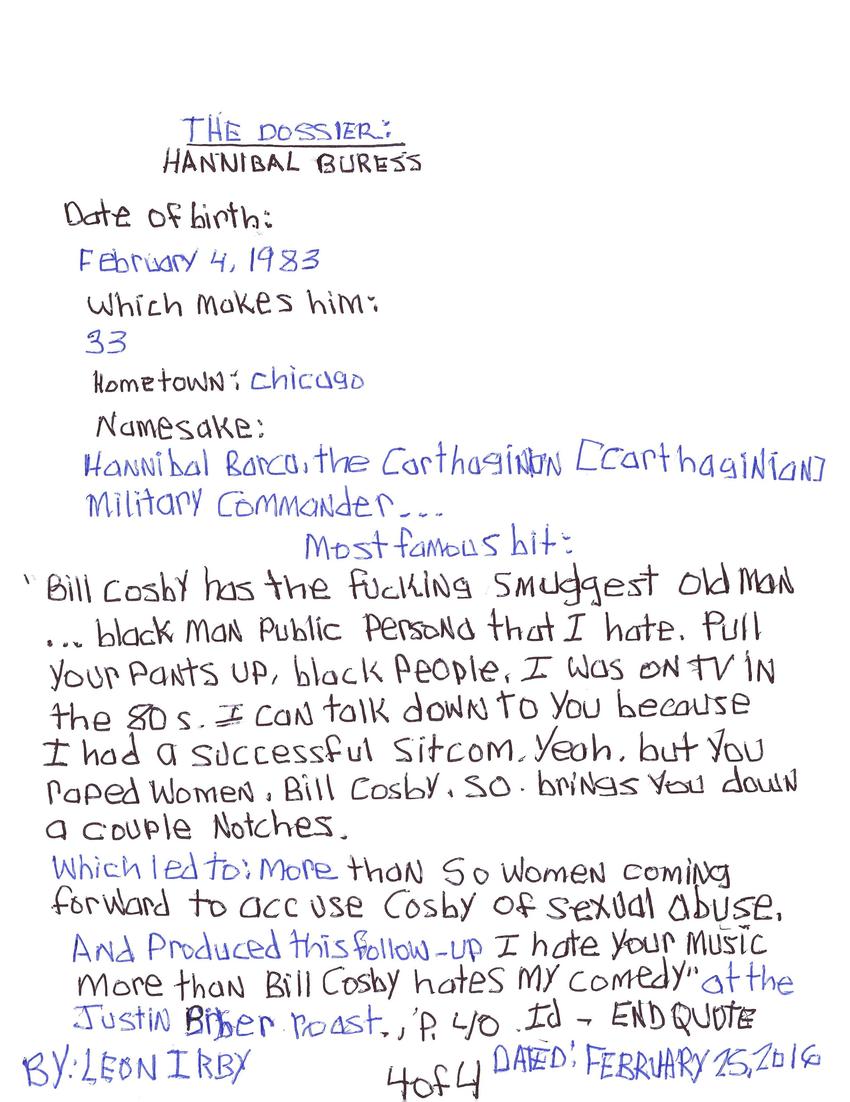 THE DOSSIER:
HANNIBAL BURESS
Date of birth:
February 4, 1983
Which makes him:
33
Hometown: Chicago
Namesake:
Hannibal Barca, the Carthaginon [Carthaginian]
Military Commander...
Most famous bit:
"Bill Cosby has the fucking smuggest old man
... black man public persona that I hate. Pull
your pants up, black people, I was on TV in
the 80s. I can talk down to you because
I had a successful sitcom. Yeah, but you
raped women, Bill Cosby, so. brings you down
a couple notches.
Which led to: More than 50 women coming
forward to accuse Cosby of sexual abuse.
And Produced this follow-up I hate your music
more than Bill Cosby hates my comedy" at the
Justin Biber roast., P. 40 .Id - END QUOTE
BY: LEON IRBY
4 of 4
DATED: FEBRUARY 25, 2016